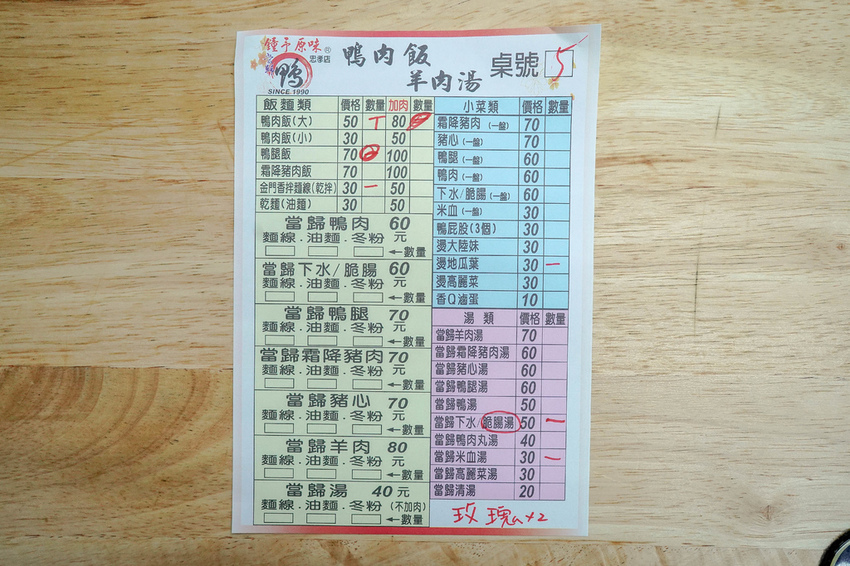 鐘予原味®
忠孝店
鴨
SINCE 1990
鴨肉飯
羊肉湯
桌號 5
飯麵類 價格 數量 加肉 數量
鴨肉飯(大) 50 T 80
鴨肉飯(小) 30 50
鴨腿飯 70 100
霜降豬肉飯 70 100
金門香拌麵線(乾拌) 30 一 50
乾麵(油麵) 30 50
當歸鴨肉 60元
麵線.油麵.冬粉
←數量
當歸下水/脆腸 60元
麵線.油麵.冬粉
←數量
當歸鴨腿 70元
麵線.油麵.冬粉
←數量
當歸霜降豬肉 70元
麵線.油麵.冬粉
←數量
當歸豬心 70元
麵線.油麵.冬粉
←數量
當歸羊肉 80元
麵線.油麵.冬粉
←數量
當歸湯 40元
麵線.油麵.冬粉(不加肉)
←數量
小菜類 價格 數量
霜降豬肉(一盤) 70
豬心(一盤) 70
鴨腿(一盤) 60
鴨肉(一盤) 60
下水/脆腸(一盤) 60
米血(一盤) 30
鴨屁股(3個) 30
燙大陸妹 30
燙地瓜葉 30 一
燙高麗菜 30
香Q滷蛋 10
湯類 價格 數量
當歸羊肉湯 70
當歸霜降豬肉湯 60
當歸豬心湯 60
當歸鴨腿湯 60
當歸鴨湯 50
當歸下水/脆腸湯 50 一
當歸鴨肉丸湯 40
當歸米血湯 30 一
當歸高麗菜湯 30
當歸清湯 20
玫瑰 x2